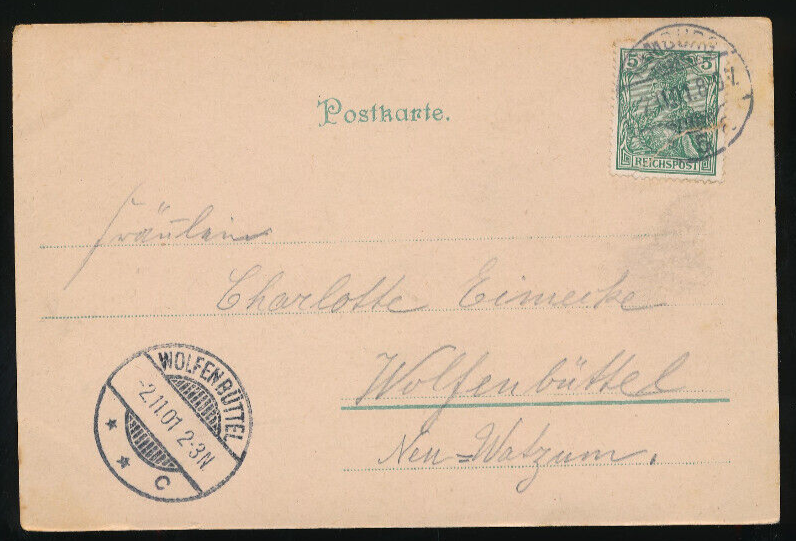 Postkarte.
5 5
REICHSPOST
Fräulein
Charlotte Eimecke
Wolfenbüttel
Neu=Watzum.
WOLFENBÜTTEL
-2.11.01 2-3N.
* * C